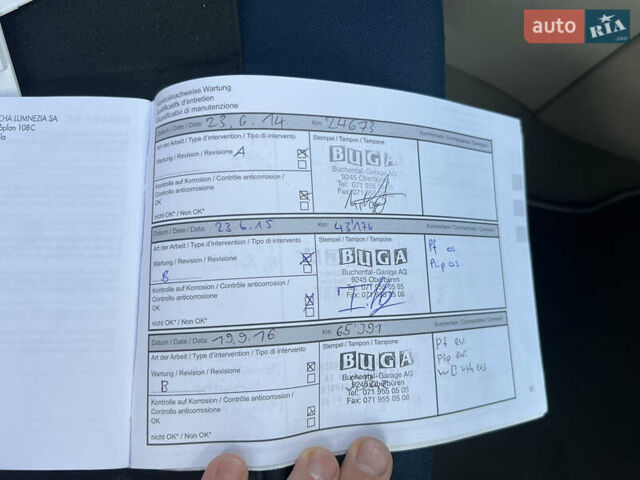 auto RIA.com
CHA LUMNEZIA SA
plan 108C
Kontrollnachweise Wartung
Justificatifs d'entretien
Giustificativi di manutenzione
Datum / Date / Data: 23.6.14 Km: 24673 Kommentare / Commentaires / Commenti:
Art der Arbeit / Type d'intervention / Tipo di intervento
Wartung / Revision / Revisione A
Kontrolle auf Korrosion / Contrôle anticorrosion /
Controllo anticorrosione
OK
nicht OK* / Non OK*
Stempel / Tampon / Tampone
BUGA
Buchental-Garage AG
9245 Oberbüren
Tel: 071 955
Fax: 071
Datum / Date / Data: 23.6.15 Km: 43'176 Kommentare / Commentaires / Commenti:
Art der Arbeit / Type d'intervention / Tipo di intervento
Wartung / Revision / Revisione
B
Kontrolle auf Korrosion / Contrôle anticorrosion /
Controllo anticorrosione
OK
nicht OK* / Non OK*
Stempel / Tampon / Tampone
BUGA
Buchental-Garage AG
9245 Oberbüren
Tel: 071 955 05 05
Fax: 071 955 05 06
Datum / Date / Data: 19.9.16 Km: 65'391 Kommentare / Commentaires / Commenti:
Art der Arbeit / Type d'intervention / Tipo di intervento
Wartung / Revision / Revisione
B
Kontrolle auf Korrosion / Contrôle anticorrosion /
Controllo anticorrosione
OK
nicht OK* / Non OK*
Stempel / Tampon / Tampone
BUGA
Buchental-Garage AG
9245 Oberbüren
Tel: 071 955 05 05
Fax: 071 955 05 06